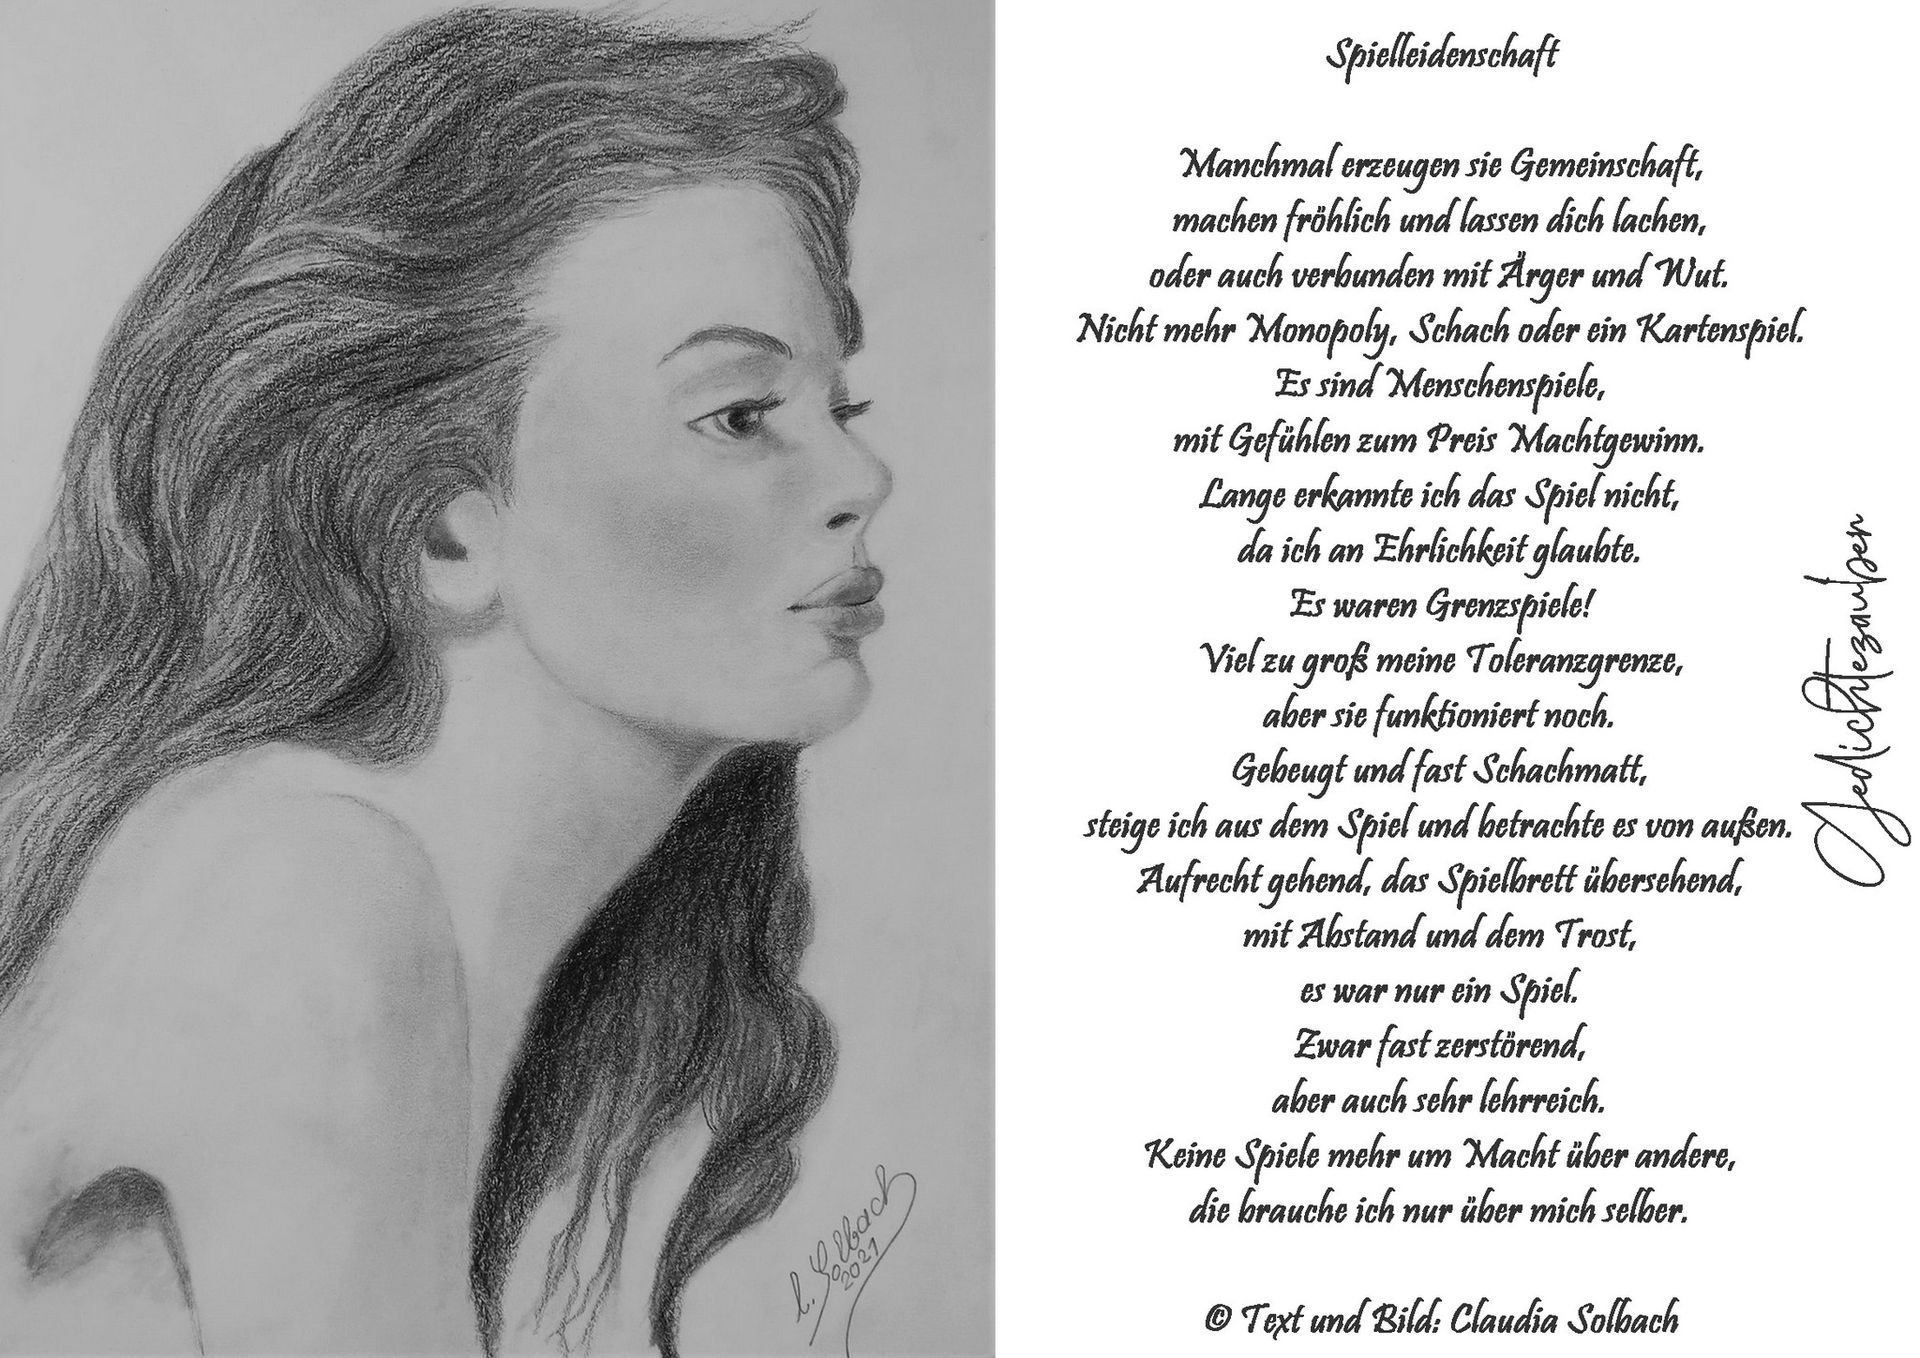 Spielleidenschaft
Manchmal erzeugen sie Gemeinschaft,
machen fröhlich und lassen dich lachen,
oder auch verbunden mit Ärger und Wut.
Nicht mehr Monopoly, Schach oder ein Kartenspiel.
Es sind Menschenspiele,
mit Gefühlen zum Preis Machtgewinn.
Lange erkannte ich das Spiel nicht,
da ich an Ehrlichkeit glaubte.
Es waren Grenzspiele!
Viel zu groß meine Toleranzgrenze,
aber sie funktioniert noch.
Gebeugt und fast Schachmatt,
steige ich aus dem Spiel und betrachte es von außen.
Aufrecht gehend, das Spielbrett übersehend,
mit Abstand und dem Trost,
es war nur ein Spiel.
Zwar fast zerstörend,
aber auch sehr lehrreich.
Keine Spiele mehr um Macht über andere,
die brauche ich nur über mich selber.
© Text und Bild: Claudia Solbach
Gedichtezauber
C. Solbach
2021